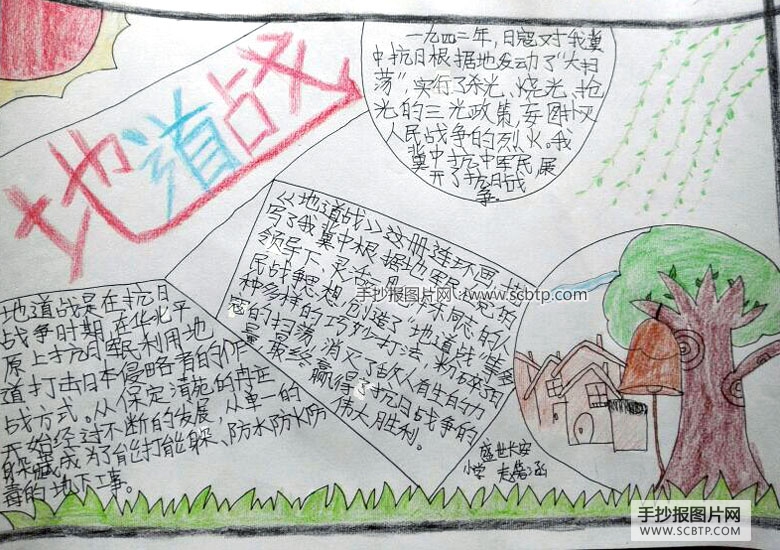 地道战
一九四二年,日寇对我冀
中抗日根据地发动了“大扫
荡”,实行了杀光、烧光、抢
光的三光政策,妄图扑灭
人民战争的烈火。我
冀中抗中军民展
开了抗日战
争。
《地道战》这册连环画,描
写了我冀中根据地军民在党的
领导下、灵活运用毛泽东同志的人
民战争思想,创造了“地道战”等多
种多样的巧妙打法,粉碎了日
寇的扫荡,消灭了敌人有生的力
量,最终赢得了抗日战争的
伟大胜利。
地道战是在抗日
战争时期,在华北平
原上抗日军民利用地
道打击日本侵略者的作
战方式。从保定清苑的冉庄
开始经过不断的发展,从单一的
躲藏成为了能打能躲、防水防火防
毒的地下工事。
盛世长安
小学
手抄报图片网:www.scbtp.com
手抄报图片网
WWW.SCBTP.COM